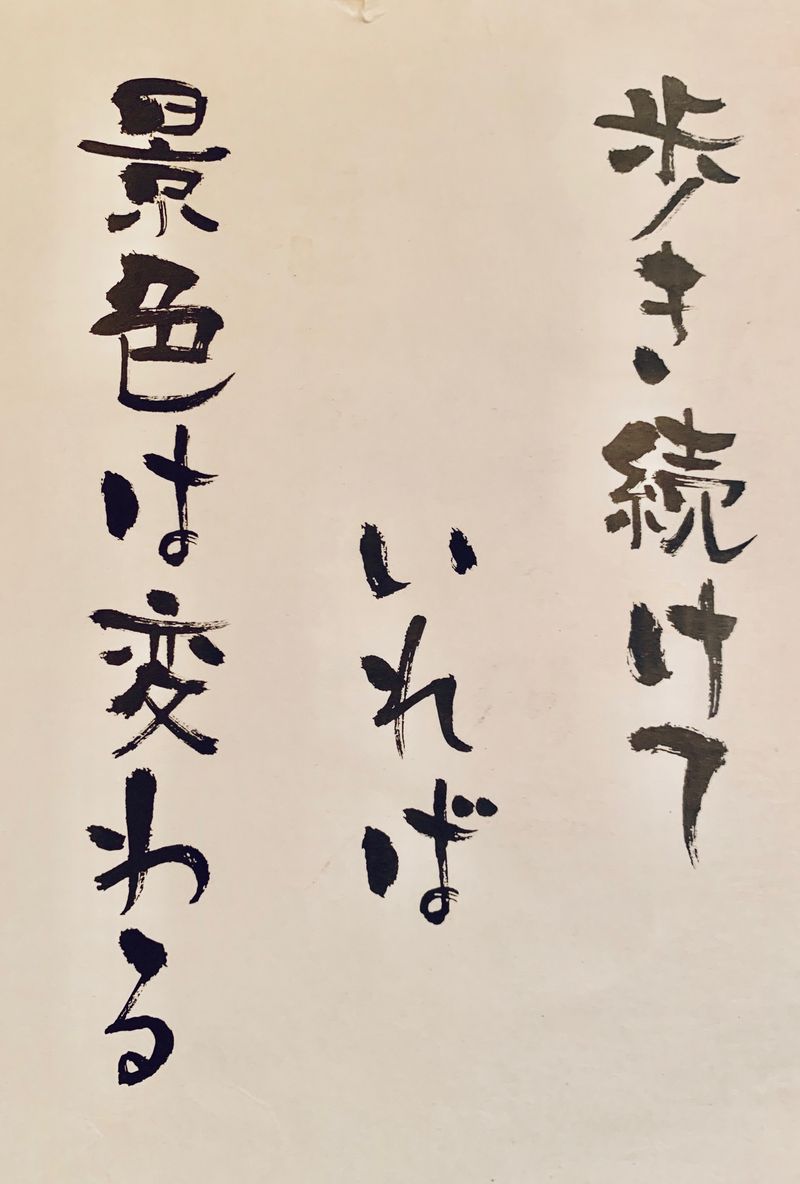 歩き続けて
いれば
景色は変わる